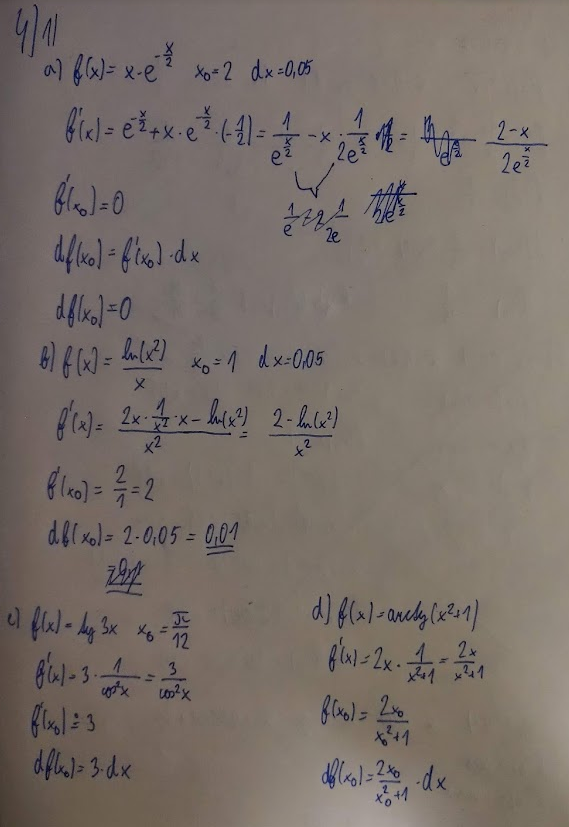 4) 11
a) f(x) = x·e^{-x/2} x₀ = 2 dx = 0,05
f'(x) = e^{-x/2} + x·e^{-x/2}·(-1/2) = 1/e^{x/2} - x·1/2e^{x/2} = (2-x)/2e^{x/2}
f'(x₀) = 0
df(x₀) = f'(x₀)·dx
df(x₀) = 0
b) f(x) = ln(x²)/x x₀ = 1 dx = 0,05
f'(x) = (2x·1/x²·x - ln(x²))/x² = (2 - ln(x²))/x²
f'(x₀) = 2/1 = 2
df(x₀) = 2·0,05 = 0,01
c) f(x) = tg 3x x₀ = π/12
f'(x) = 3·1/cos²x = 3/cos²x
f'(x₀) = 3
df(x₀) = 3·dx
d) f(x) = arctg(x²+1)
f'(x) = 2x·1/(x²+1) = 2x/(x²+1)
f(x₀) = 2x₀/(x₀²+1)
df(x₀) = 2x₀/(x₀²+1)·dx